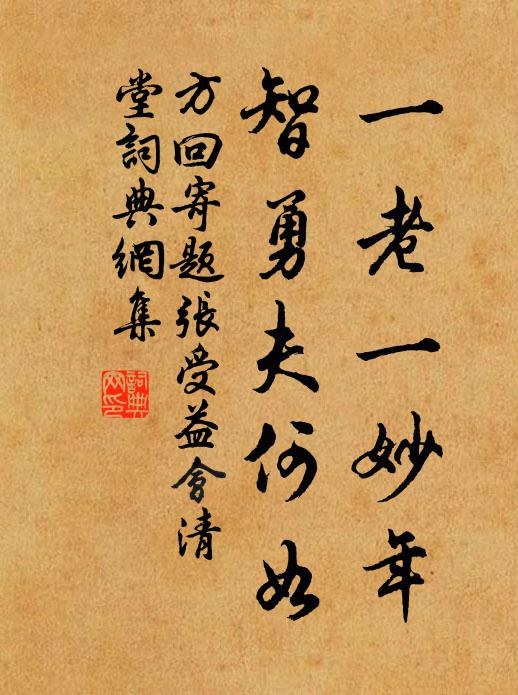 一老一妙年
智勇夫何如
方回寄题張受益會清
堂詞典網集
詞典
网印